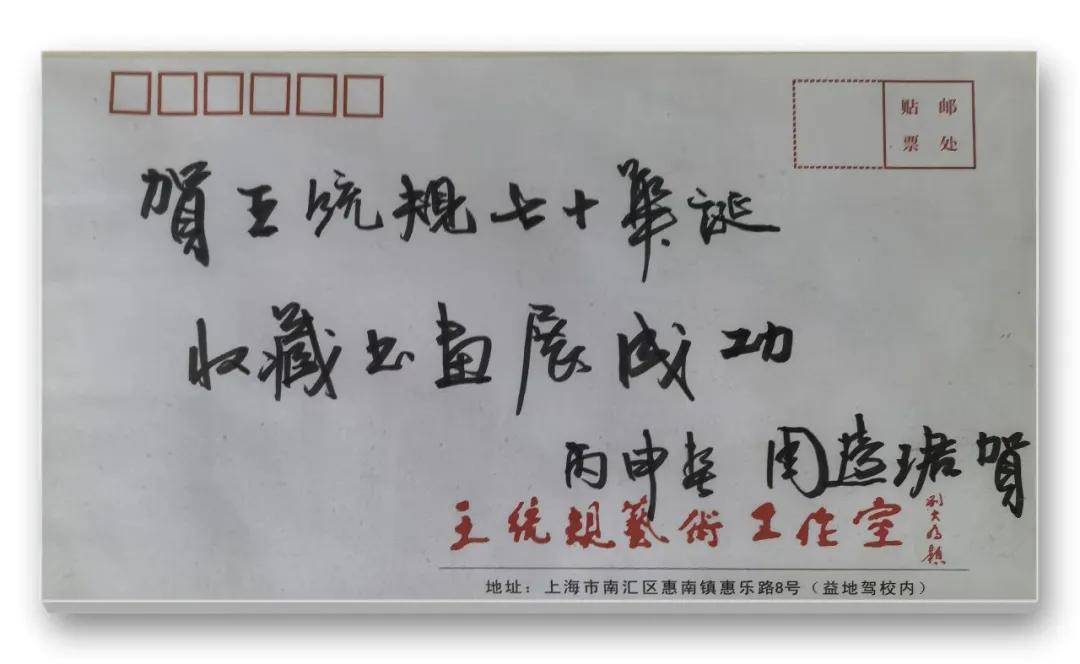 贴 邮
票 处
賀王统规七十華诞
收藏书畫展成功
丙申春 周志瑶 賀
王统规藝術工作室
刘大为题
地址：上海市南汇区惠南镇惠乐路8号（益地驾校内）